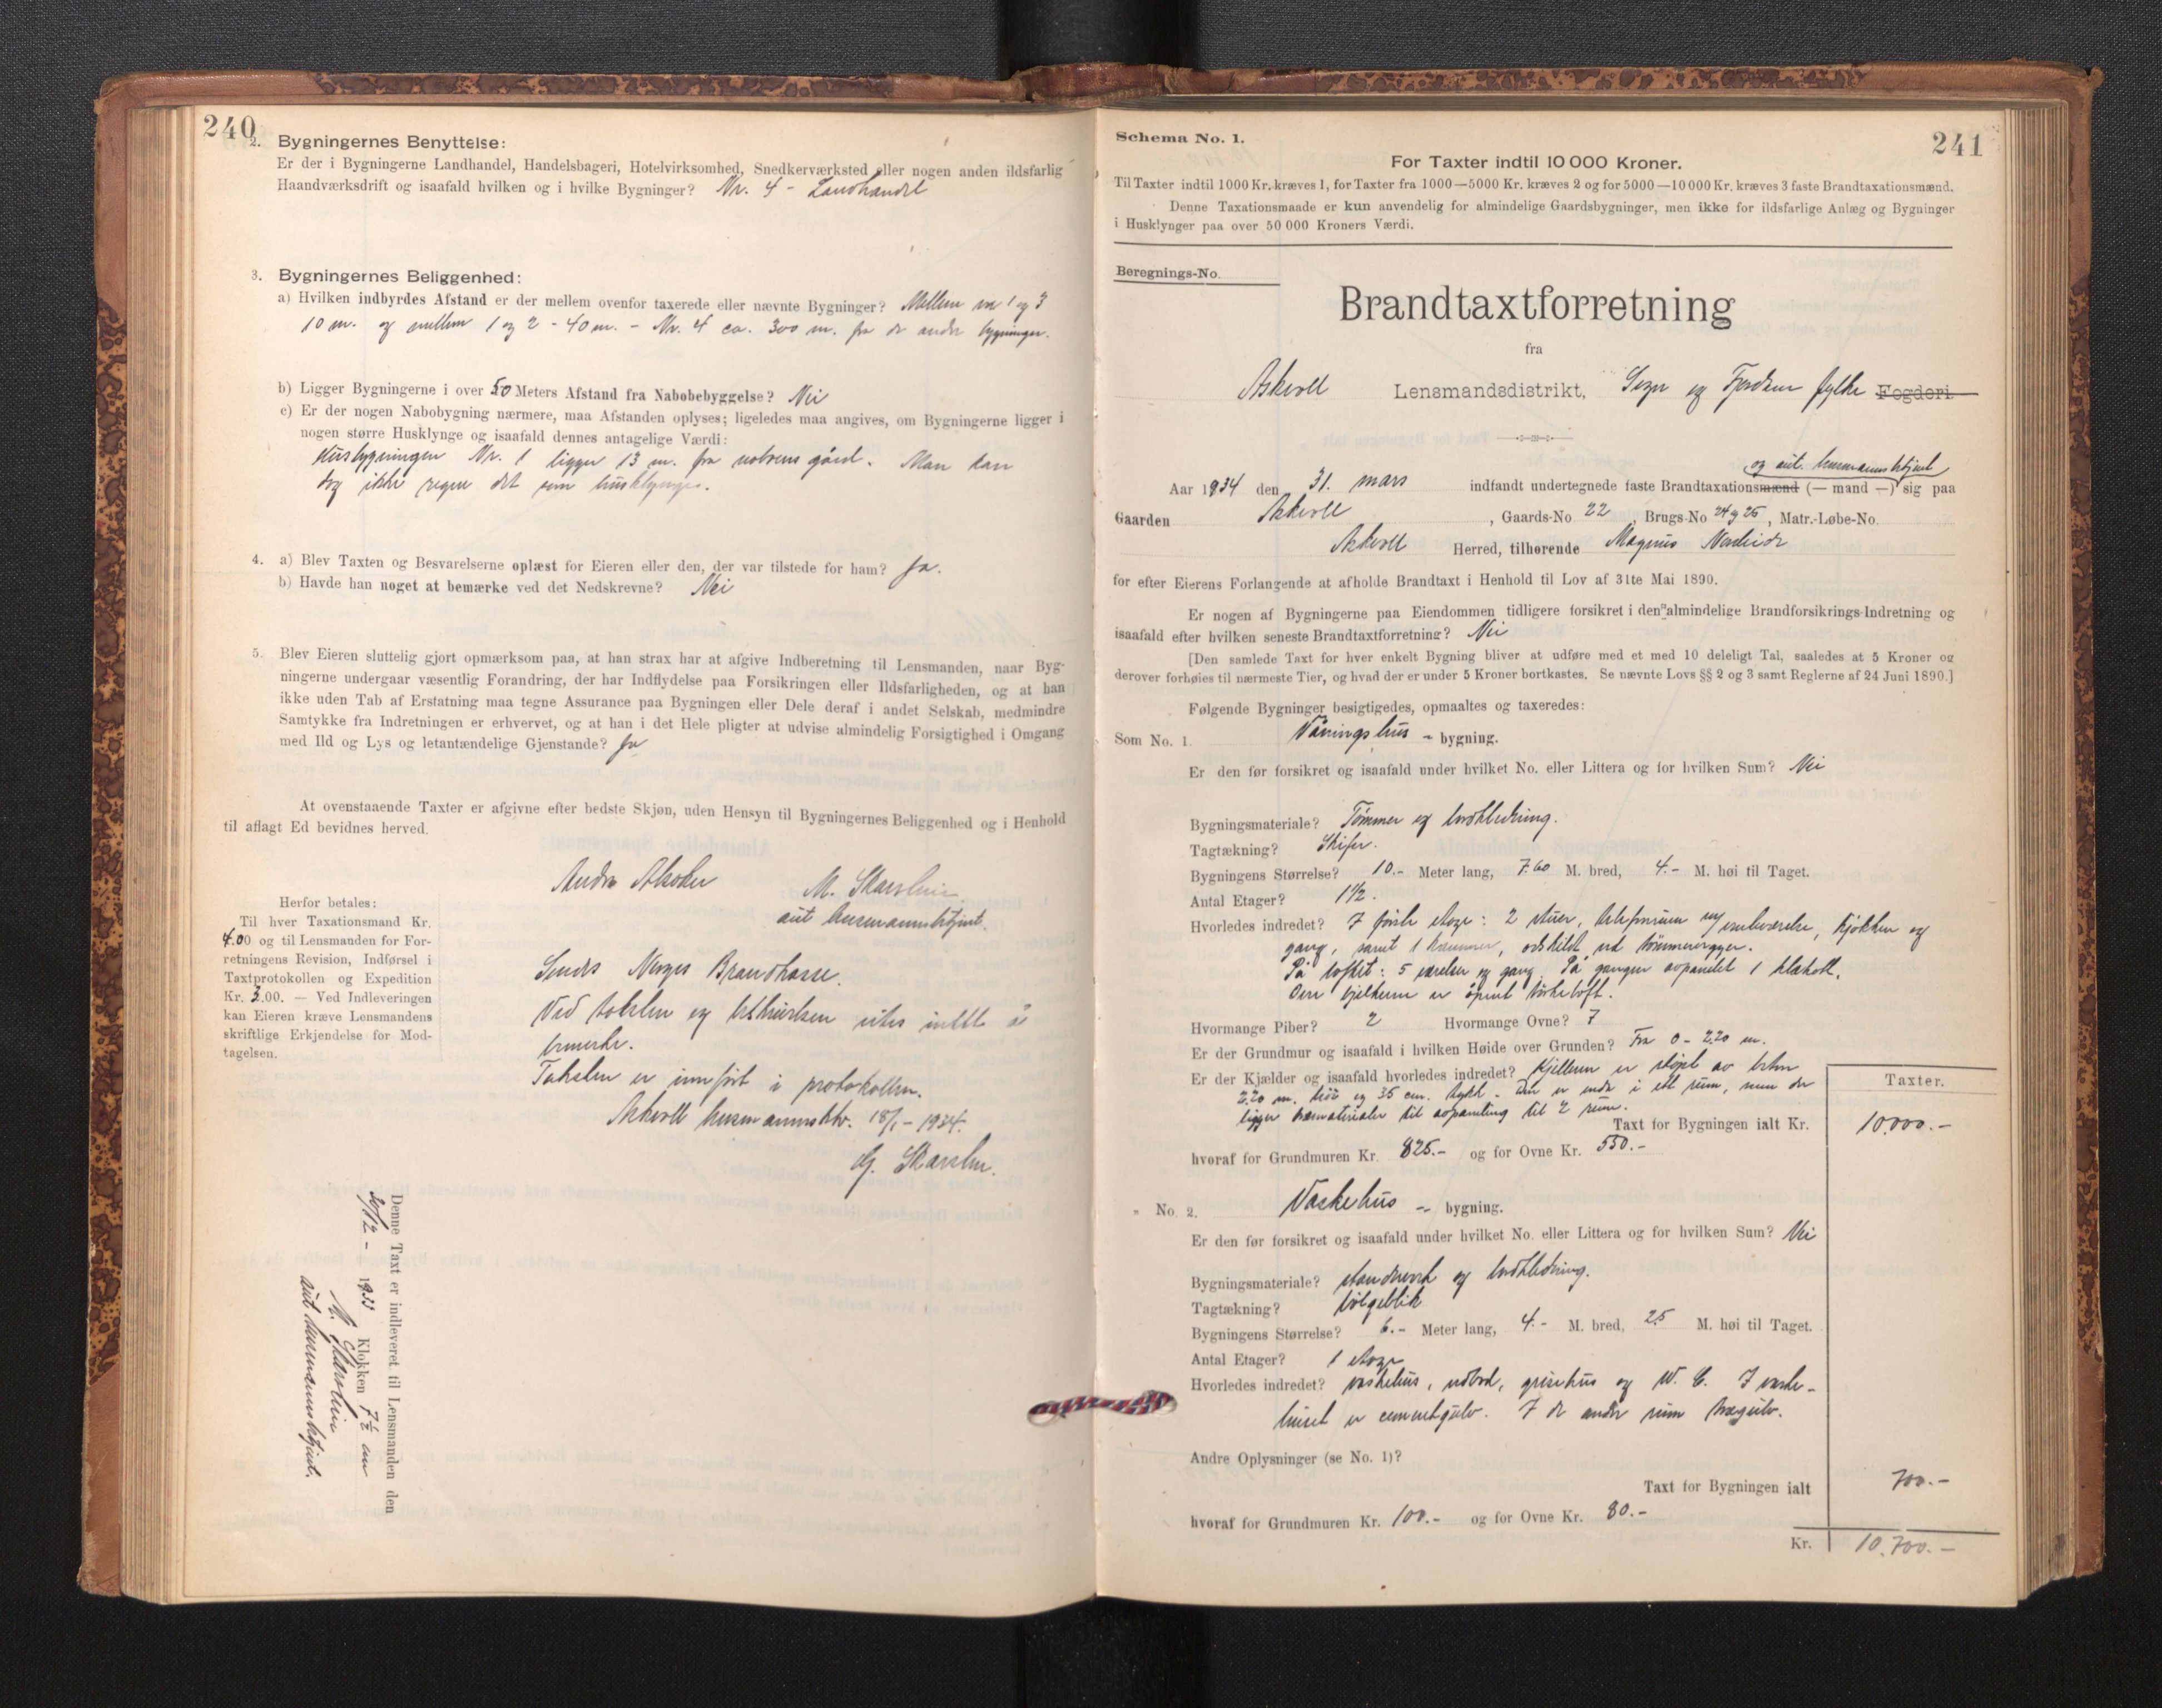 240
2. Bygningernes Benyttelse:
Er der i Bygningerne Landhandel, Handelsbageri, Hotelvirksomhed, Snedkerværksted eller nogen anden ildsfarlig
Haandværksdrift og isaafald hvilken og i hvilke Bygninger? Nr. 4 - Landhandel
3. Bygningernes Beliggenhed:
a) Hvilken indbyrdes Afstand er der mellem ovenfor taxerede eller nævnte Bygninger? Mellem nr 1 og 3
10 m. og mellem 1 og 2 - 40 m. - Nr. 4 ca. 300 m. fra de andre bygninger.
b) Ligger Bygningerne i over 50 Meters Afstand fra Nabobebyggelse? Nei
c) Er der nogen Nabobygning nærmere, maa Afstanden oplyses; ligeledes maa angives, om Bygningerne ligger i
nogen større Husklynge og isaafald dennes antagelige Værdi:
Husbygningen Nr. 1 ligger 13 m. fra naboens gård. Man kan
dog ikke regne det som husklynge.
4. a) Blev Taxten og Besvarelserne oplæst for Eieren eller den, der var tilstede for ham? Ja.
b) Havde han noget at bemærke ved det Nedskrevne? Nei
5. Blev Eieren sluttelig gjort opmærksom paa, at han strax har at afgive Indberetning til Lensmanden, naar Byg-
ningerne undergaar væsentlig Forandring, der har Indflydelse paa Forsikringen eller Ildsfarligheden, og at han
ikke uden Tab af Erstatning maa tegne Assurance paa Bygningen eller Dele deraf i andet Selskab, medmindre
Samtykke fra Indretningen er erhvervet, og at han i det Hele pligter at udvise almindelig Forsigtighed i Omgang
med Ild og Lys og letantændelige Gjenstande? Ja
At ovenstaaende Taxter er afgivne efter bedste Skjøn, uden Hensyn til Bygningernes Beliggenhed og i Henhold
til aflagt Ed bevidnes herved.
M. Skarstein
aut lensmannsbetjent.
Herfor betales:
Til hver Taxationsmand Kr.
4.00 og til Lensmanden for For-
retningens Revision, Indførsel i
Taxtprotokollen og Expedition
Kr. 3.00. — Ved Indleveringen
kan Eieren kræve Lensmandens
skriftlige Erkjendelse for Mod-
tagelsen.
Sendes Norges Brandkasse.
Ved taksten og beskrivelsen vites intet å
bemerke.
Taksten er innført i protokollen.
Askvoll lensmannsktr. 18/1 - 1934.
G. Skarstein.
Denne Taxt er indleveret til Lensmanden den
30/12 - 1933 Klokken 7½ em
M. Skarstein
aut lensmannsbetjent.
Schema No. 1.
241
For Taxter indtil 10 000 Kroner.
Til Taxter indtil 1000 Kr. kræves 1, for Taxter fra 1000—5000 Kr. kræves 2 og for 5000—10000 Kr. kræves 3 faste Brandtaxationsmænd.
Denne Taxationsmaade er kun anvendelig for almindelige Gaardsbygninger, men ikke for ildsfarlige Anlæg og Bygninger
i Husklynger paa over 50 000 Kroners Værdi.
Beregnings-No.
Brandtaxtforretning
fra
Askvoll Lensmandsdistrikt, Sogn og Fjordane fylke Fogderi
og aut. lensmannsbetjent
Aar 1934 den 31. mars indfandt undertegnede faste Brandtaxationsmænd (— mand —) sig paa
Gaarden Askvoll, Gaards-No 22, Brugs-No 24 og 25, Matr.-Løbe-No.
Askvoll Herred, tilhørende Magnus
for efter Eierens Forlangende at afholde Brandtaxt i Henhold til Lov af 31te Mai 1890.
Er nogen af Bygningerne paa Eiendommen tidligere forsikret i den almindelige Brandforsikrings-Indretning og
isaafald efter hvilken seneste Brandtaxtforretning? Nei
[Den samlede Taxt for hver enkelt Bygning bliver at udføre med et med 10 deleligt Tal, saaledes at 5 Kroner og
derover forhøies til nærmeste Tier, og hvad der er under 5 Kroner bortkastes. Se nævnte Lovs §§ 2 og 3 samt Reglerne af 24 Juni 1890.]
Følgende Bygninger besigtigedes, opmaaltes og taxeredes:
Som No. 1. Våningshus - bygning.
Er den før forsikret og isaafald under hvilket No. eller Littera og for hvilken Sum? Nei
Bygningsmateriale? Tømmer og bordkledning.
Tagtækning? Skifer.
Bygningens Størrelse? 10.- Meter lang, 7.60 M. bred, 4.- M. høi til Taget.
Antal Etager? 1½.
Hvorledes indredet? I første etage: 2 stuer, telefonrum m/venteværelse, kjøkken og
gang, samt 1 kammer, adskilt ved tømmervegger.
På loftet: 5 værelser og gang. På gangen avpanelet 1 klækott.
Over bjelkene er åpent mørkeloft.
Hvormange Piber? 2 Hvormange Ovne? 7
Er der Grundmur og isaafald i hvilken Høide over Grunden? Fra 0 - 2.20 m.
Er der Kjælder og isaafald hvorledes indredet? Kjelleren er støpt av beton
2.20 m. høi og 35 cm. tykk. Den er endu i ett rum, men der
ligger materialer til avpaneling til 2 rum.
Taxter.
Taxt for Bygningen ialt Kr. 10.000.-
hvoraf for Grundmuren Kr. 825.- og for Ovne Kr. 550.-
" No. 2. Vaskehus - bygning.
Er den før forsikret og isaafald under hvilket No. eller Littera og for hvilken Sum? Nei
Bygningsmateriale? standverk og bordkledning.
Tagtækning? bølgeblik
Bygningens Størrelse? 6.- Meter lang, 4.- M. bred, 2.5 M. høi til Taget.
Antal Etager? 1 etage
Hvorledes indredet? vaskehus, vedbod, grisehus og W. C. I vaske-
huset er cementgulv. I de andre rum tregulv.
Andre Oplysninger (se No. 1)?
Taxt for Bygningen ialt 700.-
hvoraf for Grundmuren Kr. 100.- og for Ovne Kr. 80.-
Kr. 10.700.-